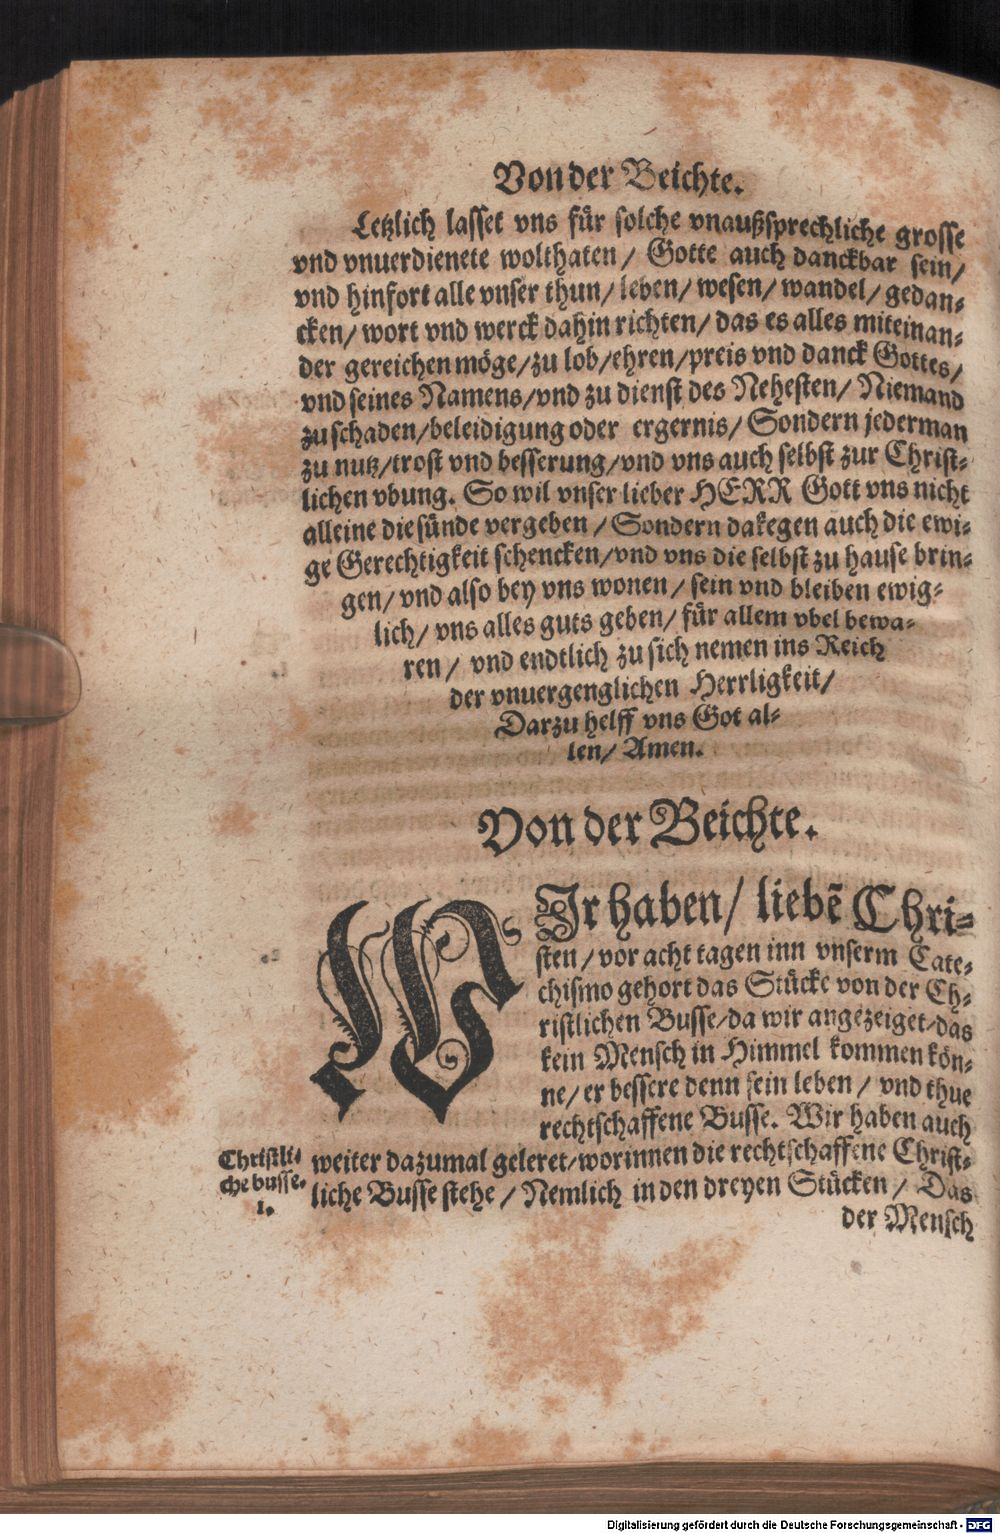 Von der Beichte.
Letzlich lasset vns für solche vnaußsprechliche grosse
vnd vnuerdienete wolthaten / Gotte auch danckbar sein/
vnd hinfort alle vnser thun/ leben/ wesen/ wandel/ gedan-
cken/ wort vnd werck dahin richten/ das es alles miteinan-
der gereichen möge/zu lob/ehren/preis vnd danck Gottes/
vnd seines Namens/vnd zu dienst des Nehesten/ Niemand
zu schaden/beleidigung oder ergernis/ Sondern jederman
zu nutz/trost vnd besserung/vnd vns auch selbst zur Christ-
lichen vbung. So wil vnser lieber HERR Gott vns nicht
alleine die sünde vergeben / Sondern dakegen auch die ewi-
ge Gerechtigkeit schencken/vnd vns die selbst zu hause brin-
gen/ vnd also bey vns wonen / sein vnd bleiben ewig-
lich/ vns alles guts geben/ für allem vbel bewa-
ren / vnd endtlich zu sich nemen ins Reich
der vnuergenglichen Herrligkeit/
Darzu helff vns Got al-
len/ Amen.
Von der Beichte.
WJr haben/ liebẽ Chri-
sten / vor acht tagen inn vnserm Cate-
chismo gehort das Stücke von der Ch-
ristlichen Busse/da wir angezeiget/das
kein Mensch in Himmel kommen kön-
ne/ er bessere denn sein leben / vnd thue
rechtschaffene Busse. Wir haben auch
weiter dazumal geleret/worinnen die rechtschaffene Christ-
liche Busse stehe / Nemlich in den dreyen Stücken / Das
der Mensch
Christli-
che busse.
1.
Digitalisierung gefördert durch die Deutsche Forschungsgemeinschaft - DFG